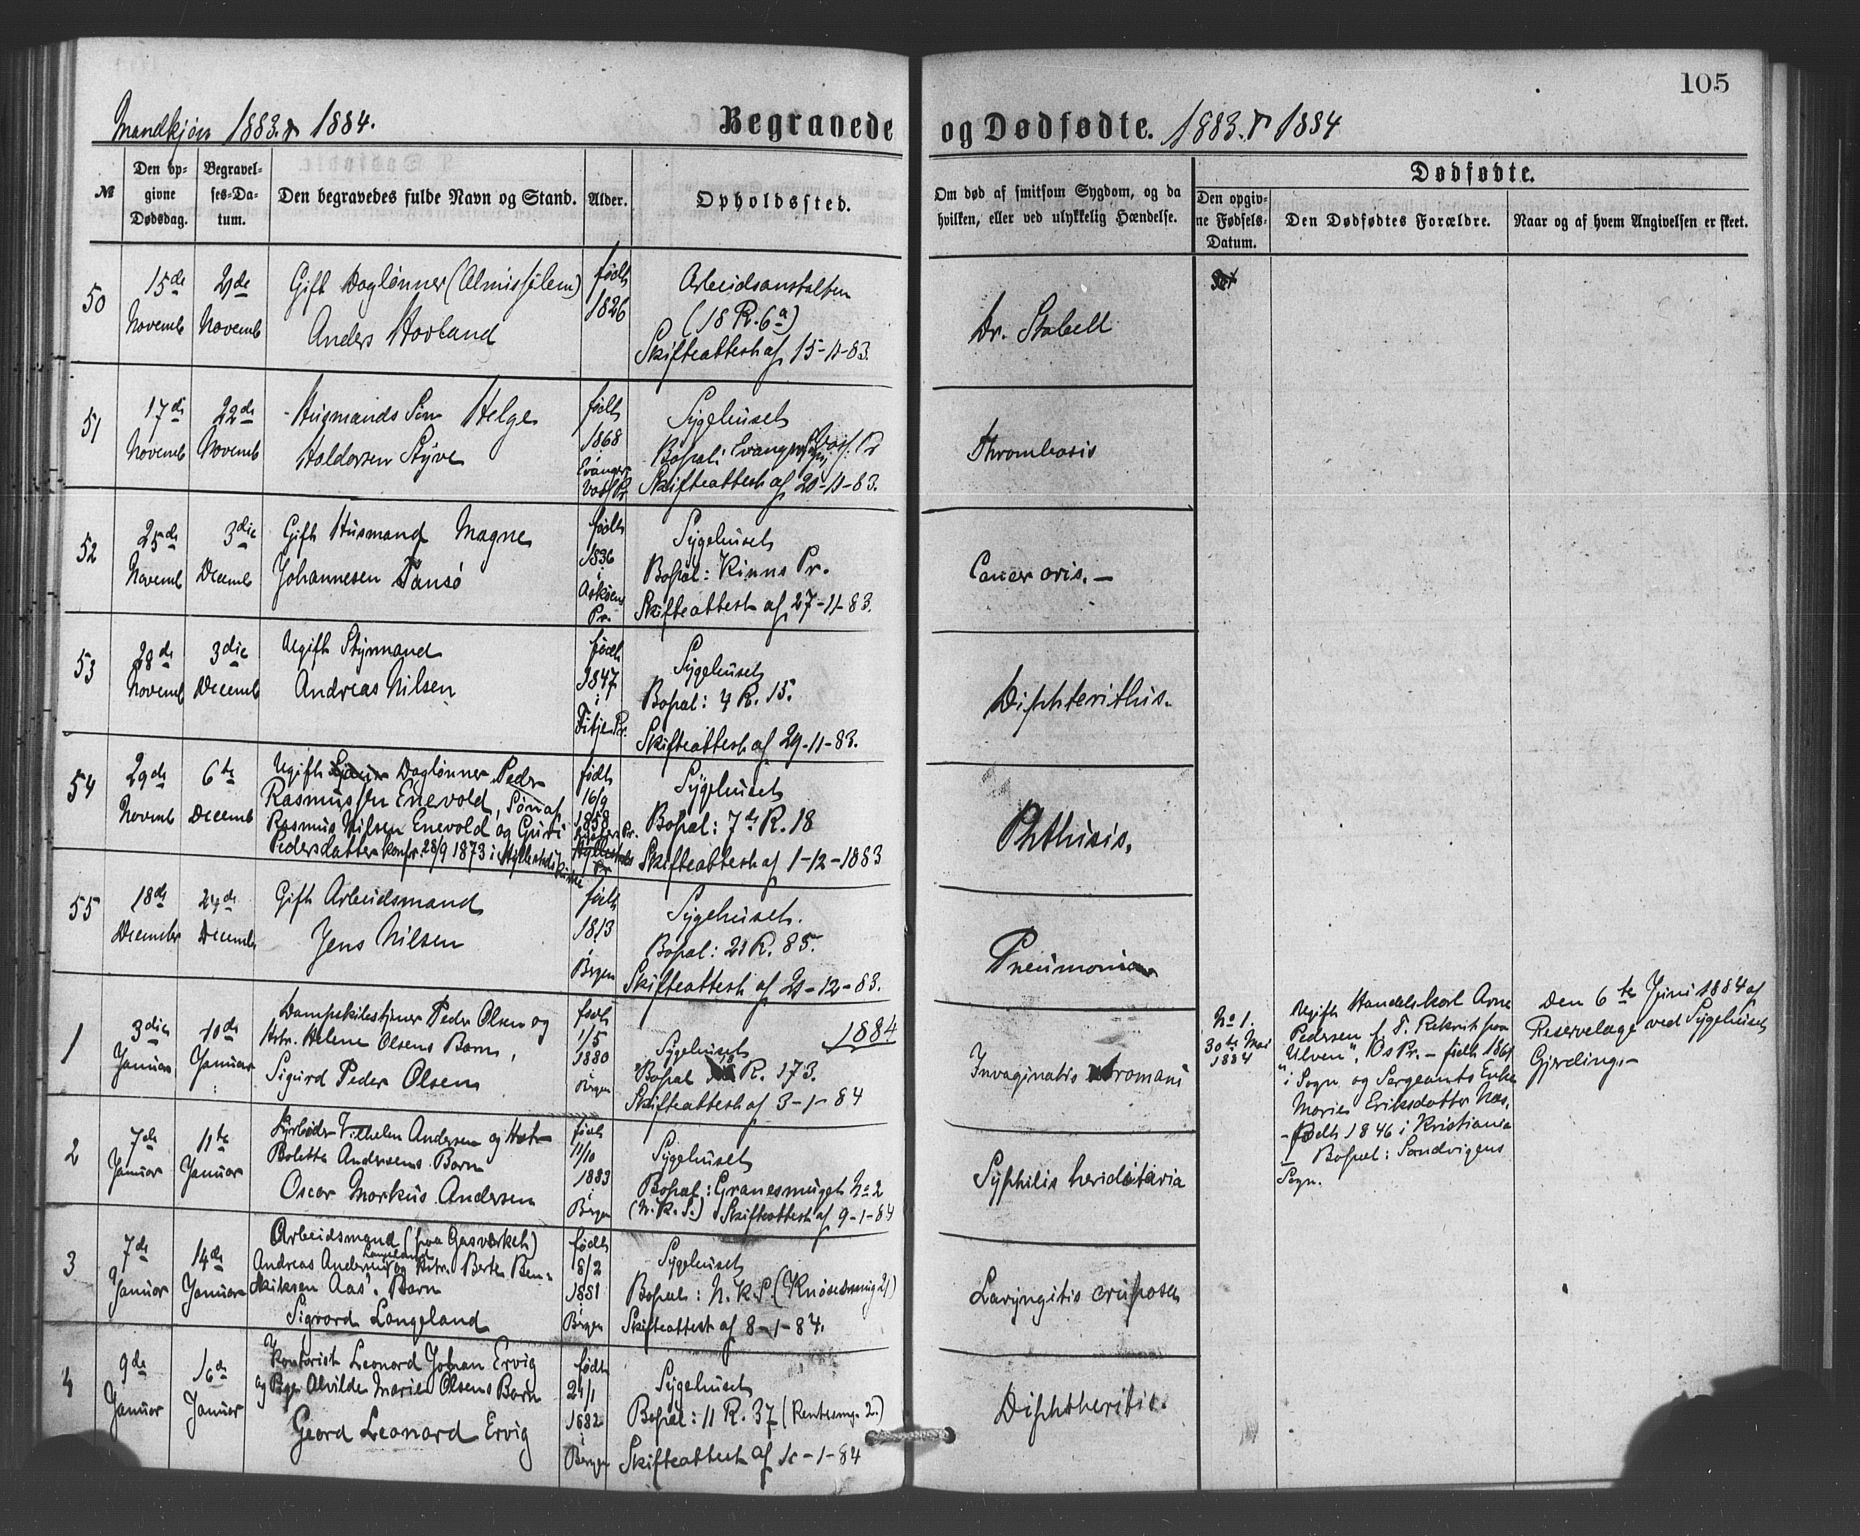 105
Mandkjøn 1883 & 1884.
Begravede og Dødfødte. 1883 & 1884
№
Den opgivne Dødsdag.
Begravelses-Datum.
Den begravedes fulde Navn og Stand.
Alder.
Opholdssted.
Om død af smitsom Sygdom, og da
hvilken, eller ved ulykkelig Hændelse.
Dødfødte.
Den opgivne Fødsels-Datum.
Den Dødfødtes Forældre.
Naar og af hvem Angivelsen er skeet.
50
15de Novemb
21de Novemb
Gift Daglønner (Almisselem)
Anders Hovland
født 1826
Arbeidsanstalten
(18 R. 6a)
Skifteattest af 15-11-83.
Dr. Stabell
51
17de Novemb
22de Novemb
Husmands Søn Helge
Haldorsen Styve
født 1868 i Evanger Voss Pr
Sygehuset
Bopæl: Evanger Voss Pr
Skifteattest af 20-11-83.
Thrombosis
52
25de Novemb
3die Decemb
Gift Husmand Magne
Johannesen Tansø
født 1836 i Askøens Pr.
Sygehuset
Bopæl: Kinns Pr.
Skifteattest af 27-11-83.
Cancer oris. —
53
28de Novemb
3die Decemb
Ugift Styrmand
Andreas Nilsen
født 1847 i Fitje Pr.
Sygehuset
Bopæl: 4 R. 15.
Skifteattest af 29-11-83.
Diphterithis.
54
29de Novemb
6te Decemb
Ugift Daglønner Peder
Rasmussen Enevold, Søn af
Rasmus Nilsen Enevold og Guri
Pedersdatter konfr. 28/9 1873 i Hyllestad Kirke
født 16/9 1858
Sygehuset
Bopæl: 7de R. 18
Skifteattest af 1-12-1883
Phthisis.
55
18de December
24de Decemb
Gift Arbeidsmand
Jens Nilsen
født 1813 i Bergen
Sygehuset.
Bopæl: 21 R. 85.
Skifteattest af 21-12-83.
Pneumonia
1884
1
3die Januar
10de Januar
Dampskibsfyrer Peder Olsen og
Hstr. Helene Olsens Barn,
Sigurd Peder Olsen
født 1/5 1880 i Bergen
Sygehuset
Bopæl R. 173.
Skifteattest af 3-1-84
Invaginatis
No 1.
30te Mai
1884
Ugift Handelskarl Arne
Pedersen f. T. Rekrut paa
"Ulven", Os Pr. — født 1861
i Sogn og Sergeants Enke
Marie Eriksdatter Næs,
— født 1846 i Kristiania
Bopæl: Sandvigens
Sogn.
Den 6te Juni 1884 af
Reservelæge ved Sygehuset
Gjerding. —
2
7de Januar
11te Januar
Fyrbøder Vilhelm Andersen og Hstr
Bolette Andersens Barn
Oscar Markus Andersen
født 11/10 1883 i Bergen
Sygehuset
Bopæl: Granesmuget No 2
(N. K. S.) Skifteattest af 9-1-84
Syphilis heriditaria
3
7de Januar
14de Januar
Arbeidsmand (paa Gasværket)
Andreas Andersen Langeland og Hstr. Berte Ben-
diksen Aas' Barn
Sigvard Langeland
født 18/2 1881 i Bergen
Sygehuset
Bopæl: N. K. S. (Knøsesmug 21)
Skifteattest af 8-1-84.
Laryngitis cruposa
4
9de Januar
16de Januar
Uf Kontorist Leonard Johan Ervig
og Pige Alvilde Marie Olsens Barn
Georg Leonard Ervig
født 24/1 1882 i Bergen
Sygehuset
Bopæl: 11 R. 37 (Rentesmg. 2.)
Skifteattest af 10-1-84
Diphtheritis.